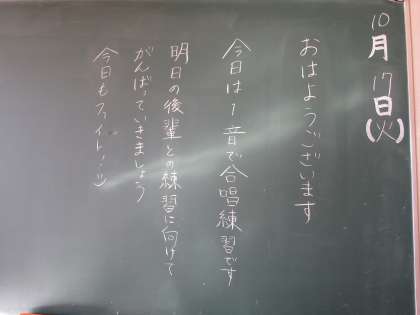 10月17日(火)
おはようございます
今日は1音で合唱練習です
明日の後輩との練習に向けて
がんばっていきましょう
今日もファイト!!